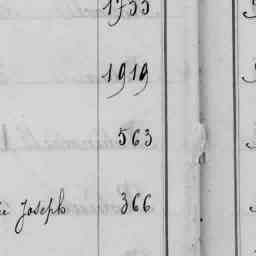 1733
1919
563
Joseph 366